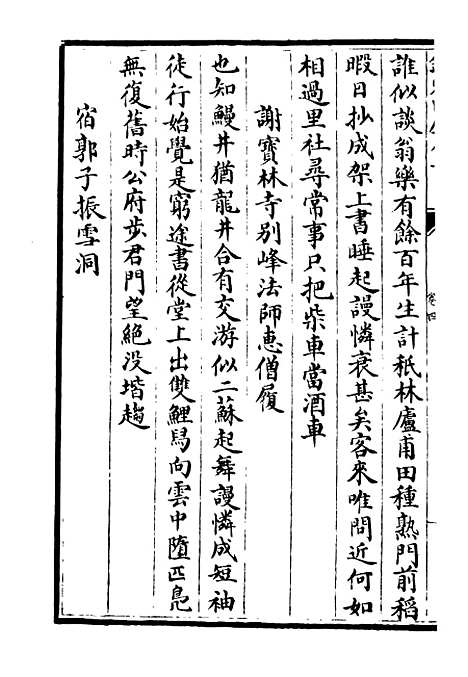 誰似談翁樂有餘百年生計秪林廬甫田種熟門前稻
暇日抄成架上書睡起謾憐衰甚矣客來唯問近何如
相過里社尋常事只把柴車當酒車
謝寳林寺别峰法師惠僧履
也知鰻井猶龍井合有交游似二蘇起舞謾憐成短袖
徒行始覺是窮途書從堂上出雙鯉舄向雲中墮匹鳧
無復舊時公府步君門望絶没堦趨
宿郭子振雪洞
卷四